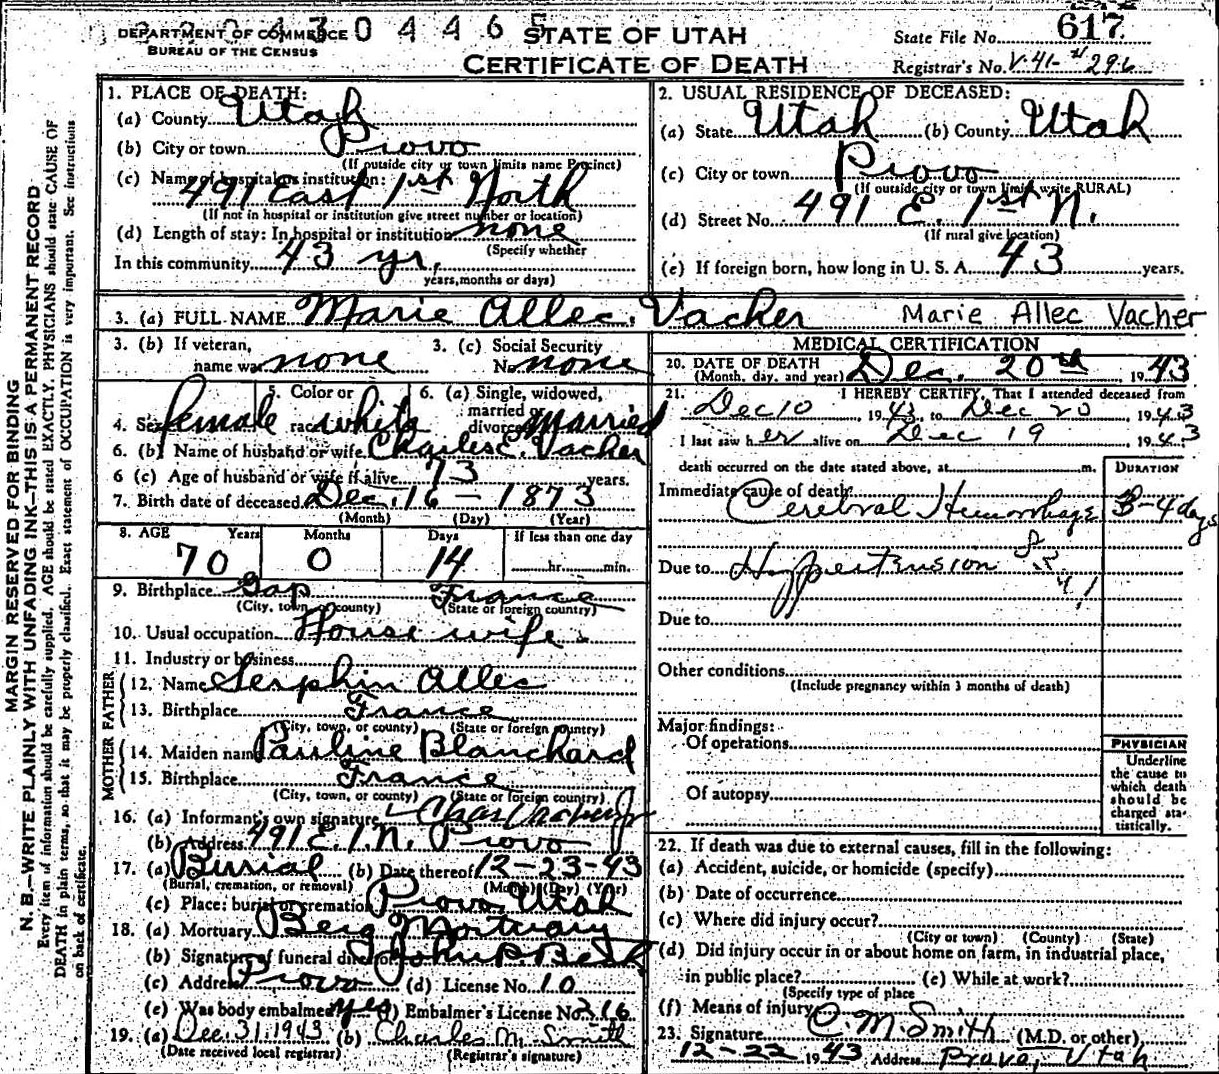 22043044 65
DEPARTMENT OF COMMERCE
BUREAU OF THE CENSUS
STATE OF UTAH
CERTIFICATE OF DEATH
State File No. 617
Registrar's No. V-41-#296
MARGIN RESERVED FOR BINDING
N. B.—WRITE PLAINLY WITH UNFADING INK—THIS IS A PERMANENT RECORD
Every item of information should be carefully supplied. AGE should be stated EXACTLY. PHYSICIANS should state CAUSE OF
DEATH in plain terms, so that it may be properly classified. Exact statement of OCCUPATION is very important. See instructions
on back of certificate.
1. PLACE OF DEATH:
(a) County Utah
(b) City or town Provo
(If outside city or town limits name Precinct)
(c) Name of hospital or institution:
491 East 1st North
(If not in hospital or institution give street number or location)
(d) Length of stay: In hospital or institution none
(Specify whether
In this community 43 yr.
years, months or days)
2. USUAL RESIDENCE OF DECEASED:
(a) State Utah (b) County Utah
(c) City or town Provo
(If outside city or town limits write RURAL)
(d) Street No. 491 E. 1st N.
(If rural give location)
(e) If foreign born, how long in U. S. A. 43 years.
3. (a) FULL NAME Marie Allec Vacher Marie Allec Vacher
3. (b) If veteran,
name war none
3. (c) Social Security
No. none
4. Sex female
5. Color or
race white
6. (a) Single, widowed,
married or
divorced Married
6. (b) Name of husband or wife Charles E. Vacher
6 (c) Age of husband or wife if alive 73 years.
7. Birth date of deceased Dec. 16 - 1873
(Month) (Day) (Year)
8. AGE Years Months Days If less than one day
70 0 14 hr. min.
9. Birthplace Gap France
(City, town, or county) (State or foreign country)
10. Usual occupation House wife
11. Industry or business
FATHER
12. Name Serphin Allec
13. Birthplace France
(City, town, or county) (State or foreign country)
MOTHER
14. Maiden name Pauline Blanchard
15. Birthplace France
(City, town, or county) (State or foreign country)
16. (a) Informant's own signature Chas Vacher Jr
(b) Address 491 E. 1. N. Provo
17. (a) Burial (b) Date thereof 12-23-43
(Burial, cremation, or removal) (Month) (Day) (Year)
(c) Place: burial or cremation Provo, Utah
18. (a) Mortuary Berg Mortuary
(b) Signature of funeral director John P. Berg
(c) Address Provo (d) License No. 10
(e) Was body embalmed yes (f) Embalmer's License No. 316
19. (a) Dec. 31, 1943 (b) Charles M. Smith
(Date received local registrar) (Registrar's signature)
MEDICAL CERTIFICATION
20. DATE OF DEATH
(Month, day, and year) Dec. 20th, 1943
21. I HEREBY CERTIFY, That I attended deceased from
Dec 10 1943, to Dec 20 1943
I last saw her alive on Dec 19 1943
death occurred on the date stated above, at m.
DURATION
Immediate cause of death
Cerebral Hemorrhage 3-4 days
Due to Hyppertension
Due to
Other conditions
(Include pregnancy within 3 months of death)
Major findings:
Of operations
Of autopsy
PHYSICIAN
Underline
the cause to
which death
should be
charged sta-
tistically.
22. If death was due to external causes, fill in the following:
(a) Accident, suicide, or homicide (specify)
(b) Date of occurrence
(c) Where did injury occur?
(City or town) (County) (State)
(d) Did injury occur in or about home on farm, in industrial place,
in public place? (e) While at work?
(Specify type of place
(f) Means of injury
23. Signature C. M. Smith (M.D. or other)
12-22 1943 Address Provo, Utah